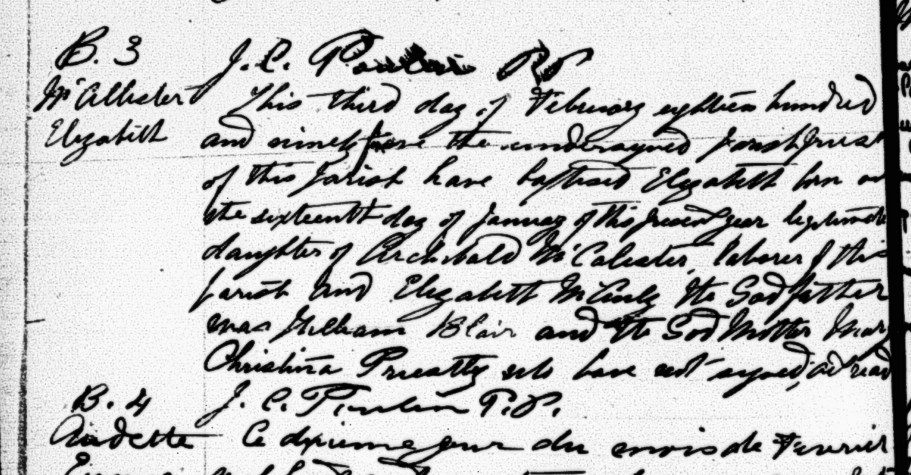 B. 3
J. C. P.P.
McAllister
Elizabeth
This third day of February eighteen hundred
and ninety the undersigned parish priest
of this parish have baptised Elizabeth born on
the sixteenth day of January of this present year legitimate
daughter of Archibald McCalister, laborer of this
parish and Elizabeth The Godfather
was William Blair and the God Mother Mary
Christina who have not signed, ad read
B. 4
J. C. Poulin P.P.
Audette
Ce jour du mois de Fevrier